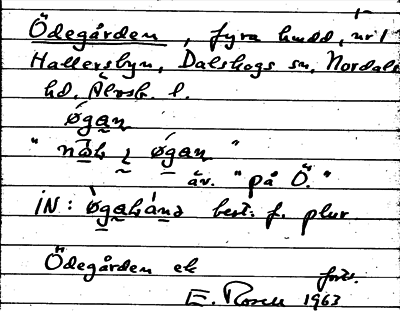 Ödegården, fyra hmdd, nr 1
Hallersbyn, Dalskogs sn, Nordals
hd, Älvsb. l.
øgan
" nåk i øgan "
äv. "på Ö."
iN: øgakana best. f. plur
Ödegården ek
forts.
E. Rosell 1963